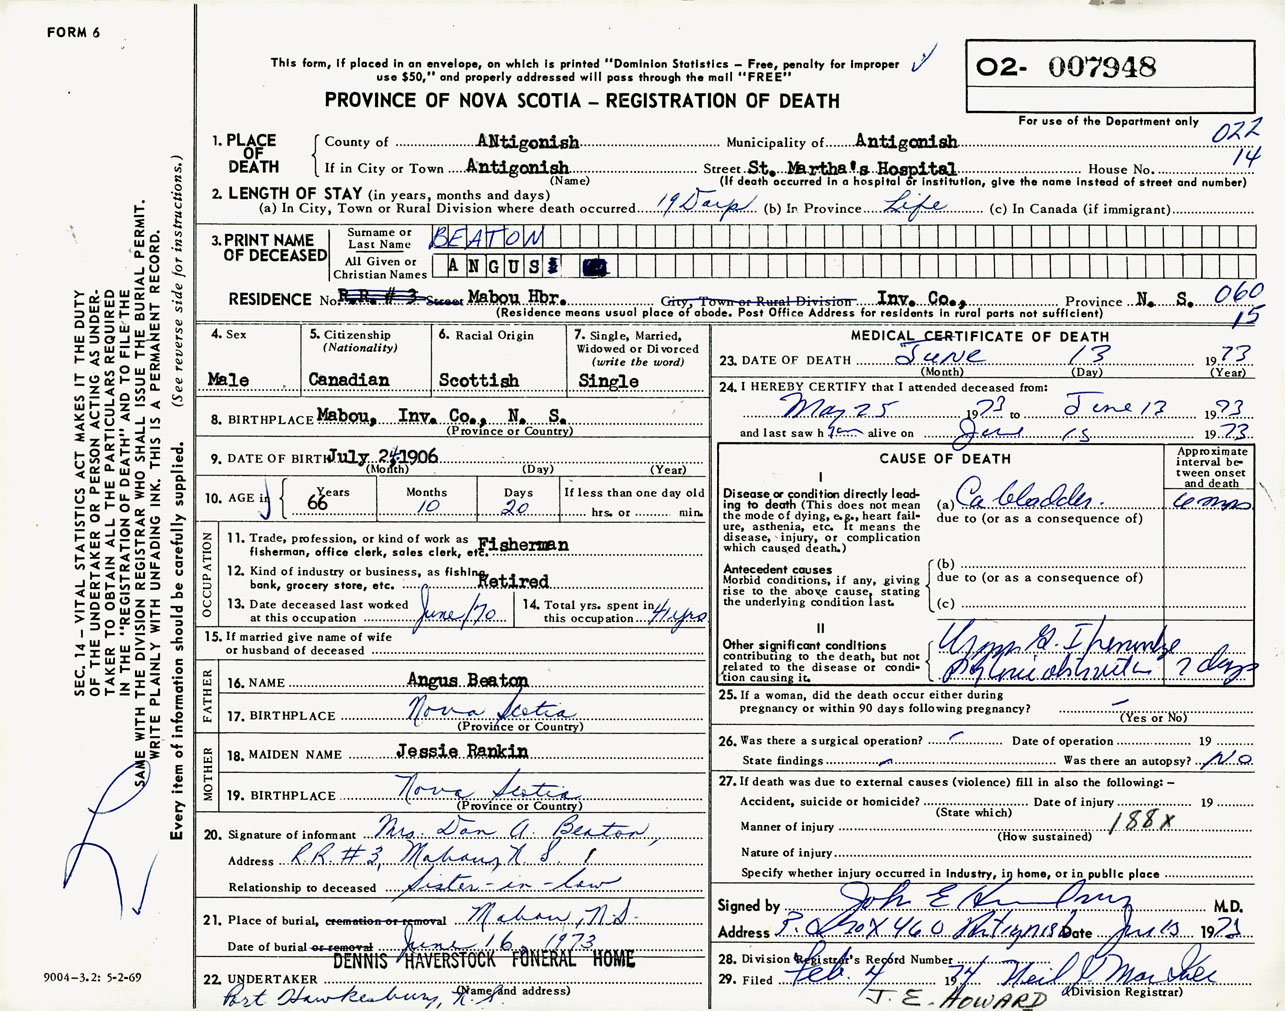 FORM 6
This form, if placed in an envelope, on which is printed "Dominion Statistics – Free, penalty for improper
use $50," and properly addressed will pass through the mail "FREE"
O2- 007948
PROVINCE OF NOVA SCOTIA – REGISTRATION OF DEATH
For use of the Department only
022
14
1. PLACE OF DEATH
County of ANtigonish Municipality of Antigonish
If in City or Town Antigonish Street St. Martha's Hospital House No.
(Name) (If death occurred in a hospital or institution, give the name instead of street and number)
2. LENGTH OF STAY (in years, months and days)
(a) In City, Town or Rural Division where death occurred 19 Days (b) In Province Life (c) In Canada (if immigrant)
3. PRINT NAME OF DECEASED
Surname or Last Name BEATON
All Given or Christian Names ANGUS
RESIDENCE No. R.R. # 3 Street Mabou Hbr. City, Town or Rural Division Inv. Co., Province N. S. 060
(Residence means usual place of abode. Post Office Address for residents in rural parts not sufficient) 15
4. Sex
Male
5. Citizenship (Nationality)
Canadian
6. Racial Origin
Scottish
7. Single, Married, Widowed or Divorced (write the word)
Single
8. BIRTHPLACE Mabou, Inv. Co., N. S.
(Province or Country)
9. DATE OF BIRTH July 24, 1906
(Month) (Day) (Year)
10. AGE in Years 66 Months 10 Days 20 If less than one day old
hrs. or min.
OCCUPATION
11. Trade, profession, or kind of work as fisherman, office clerk, sales clerk, etc. Fisherman
12. Kind of industry or business, as fishing, bank, grocery store, etc. Retired
13. Date deceased last worked at this occupation June/70
14. Total yrs. spent in this occupation 41 yrs
15. If married give name of wife
or husband of deceased
FATHER
16. NAME Angus Beaton
17. BIRTHPLACE Nova Scotia
(Province or Country)
MOTHER
18. MAIDEN NAME Jessie Rankin
19. BIRTHPLACE Nova Scotia
(Province or Country)
20. Signature of informant Mrs. Dan A. Beaton,
Address R.R. #3, Mabou, N.S.
Relationship to deceased Sister-in-law
21. Place of burial, cremation or removal Mabou, N.S.
Date of burial or removal June 16, 1973
DENNIS HAVERSTOCK FUNERAL HOME
22. UNDERTAKER
(Name and address)
Port Hawkesbury, N.S.
MEDICAL CERTIFICATE OF DEATH
23. DATE OF DEATH June 13 1973
(Month) (Day) (Year)
24. I HEREBY CERTIFY that I attended deceased from:
May 25 1973 to June 13 1973
and last saw him alive on June 13 1973
CAUSE OF DEATH
Approximate interval between onset and death
I
Disease or condition directly leading to death (This does not mean the mode of dying, e.g., heart failure, asthenia, etc. It means the disease, injury, or complication which caused death.)
(a) Ca bladder. 6 mos
due to (or as a consequence of)
Antecedent causes
Morbid conditions, if any, giving rise to the above cause, stating the underlying condition last.
(b)
due to (or as a consequence of)
(c)
II
Other significant conditions contributing to the death, but not related to the disease or condition causing it.
7 days
25. If a woman, did the death occur either during
pregnancy or within 90 days following pregnancy? –
(Yes or No)
26. Was there a surgical operation? Date of operation 19
State findings Was there an autopsy? No
27. If death was due to external causes (violence) fill in also the following: –
Accident, suicide or homicide? Date of injury 19
(State which)
Manner of injury 188X
(How sustained)
Nature of injury
Specify whether injury occurred in industry, in home, or in public place
Signed by John E M.D.
Address P.O. Box 460 Antigonish Date June 13 1973
28. Division Registrar's Record Number
29. Filed Feb 4 1974 Neil
(Division Registrar)
J. E. HOWARD
SEC. 14 – VITAL STATISTICS ACT MAKES IT THE DUTY
OF THE UNDERTAKER OR PERSON ACTING AS UNDER-
TAKER TO OBTAIN ALL THE PARTICULARS REQUIRED
IN THE "REGISTRATION OF DEATH" AND TO FILE THE
SAME WITH THE DIVISION REGISTRAR WHO SHALL ISSUE THE BURIAL PERMIT.
WRITE PLAINLY WITH UNFADING INK. THIS IS A PERMANENT RECORD.
Every item of information should be carefully supplied. (See reverse side for instructions.)
9004-3.2: 5-2-69